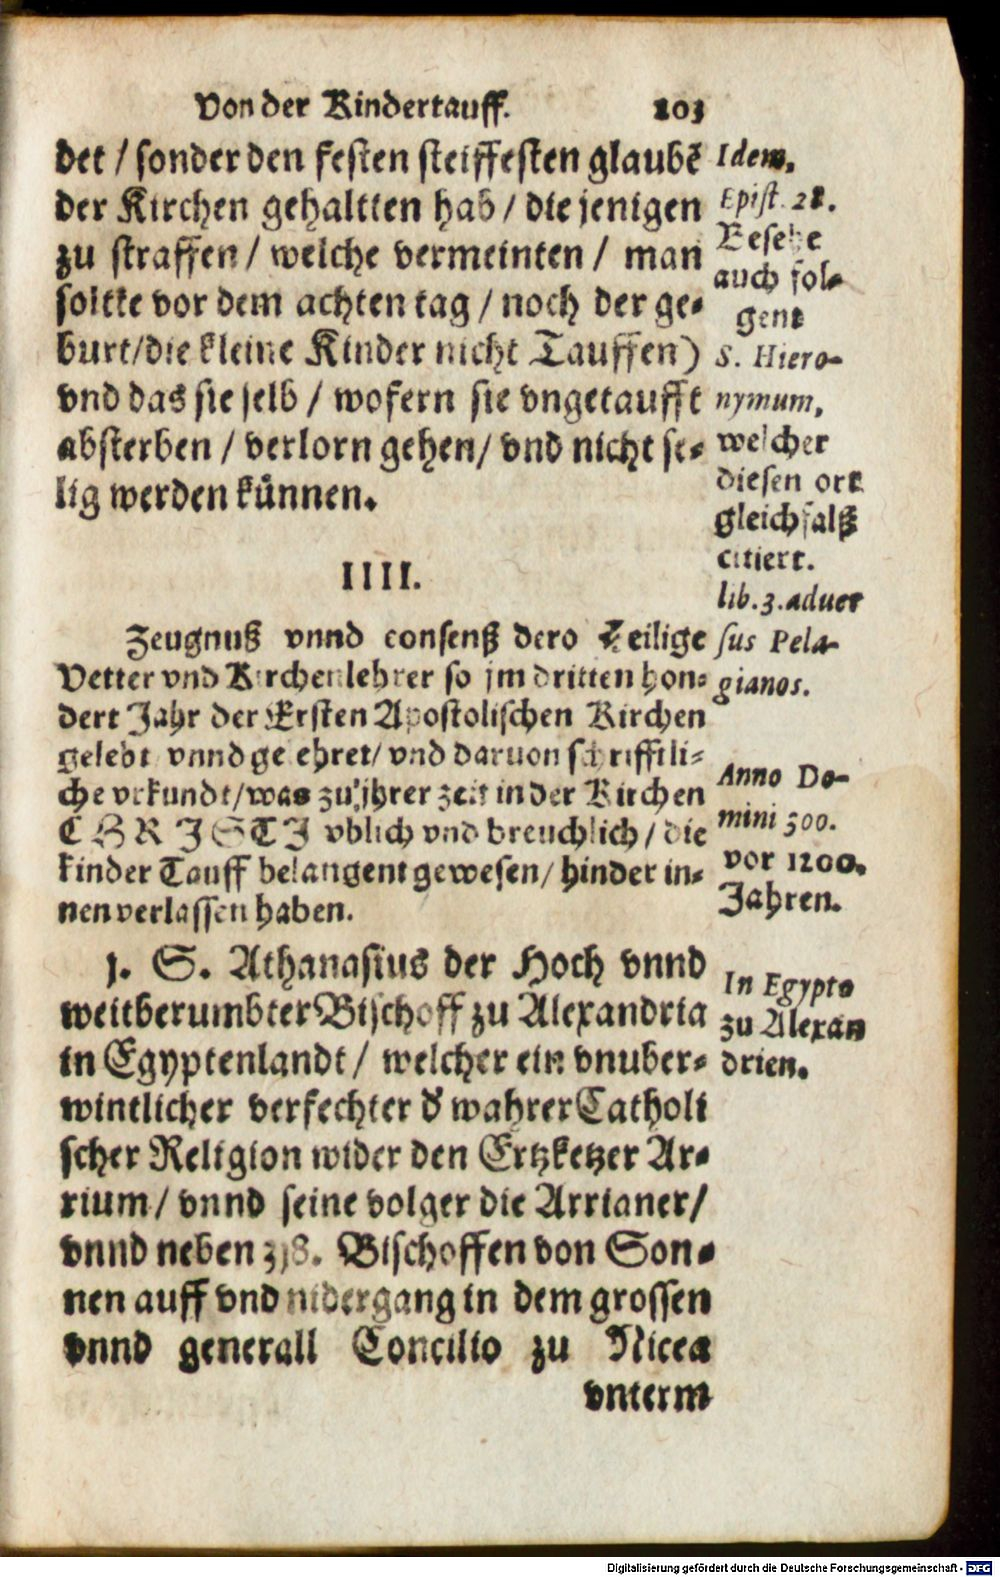 Von der Kindertauff. 203
det / sonder den festen steiffesten glaubẽ
der Kirchen gehaltten hab / die jenigen
zu straffen / welche vermeinten / man
soltte vor dem achten tag / noch der ge-
burt/die kleine Kinder nicht Tauffen)
vnd das sie selb / wofern sie vngetaufft
absterben / verlorn gehen/ vnd nicht se-
lig werden künnen.
Idem.
Epist. 28.
Besehe
auch fol-
gent
S. Hiero-
nymum,
welcher
diesen ort
gleichfalß
citiert.
lib. 3. aduer
sus Pela-
gianos.
IIII.
Zeugnuß vnnd consenß dero Heilige
Vetter vnd Kirchenlehrer so jm dritten hon-
dert Jahr der Ersten Apostolischen Kirchen
gelebt vnnd ge ehret/ vnd daruon schrifftli-
che vrkundt/was zu jhrer zeit in der Kirchen
CHRISTI vblich vnd breuchlich / die
kinder Tauff belangent gewesen/ hinder in-
nen verlassen haben.
Anno Do-
mini 300.
vor 1200.
Jahren.
1. S. Athanasius der Hoch vnnd
weitberumbter Bischoff zu Alexandria
in Egyptenlandt / welcher ein vnuber-
wintlicher verfechter d' wahrer Catholi
scher Religion wider den Ertzketzer Ar-
rium / vnnd seine volger die Arrianer/
vnnd neben 318. Bischoffen von Son-
nen auff vnd nidergang in dem grossen
vnnd generall Concilio zu Nicea
vnterm
In Egypto
zu Alexan
drien.
Digitalisierung gefördert durch die Deutsche Forschungsgemeinschaft - DFG